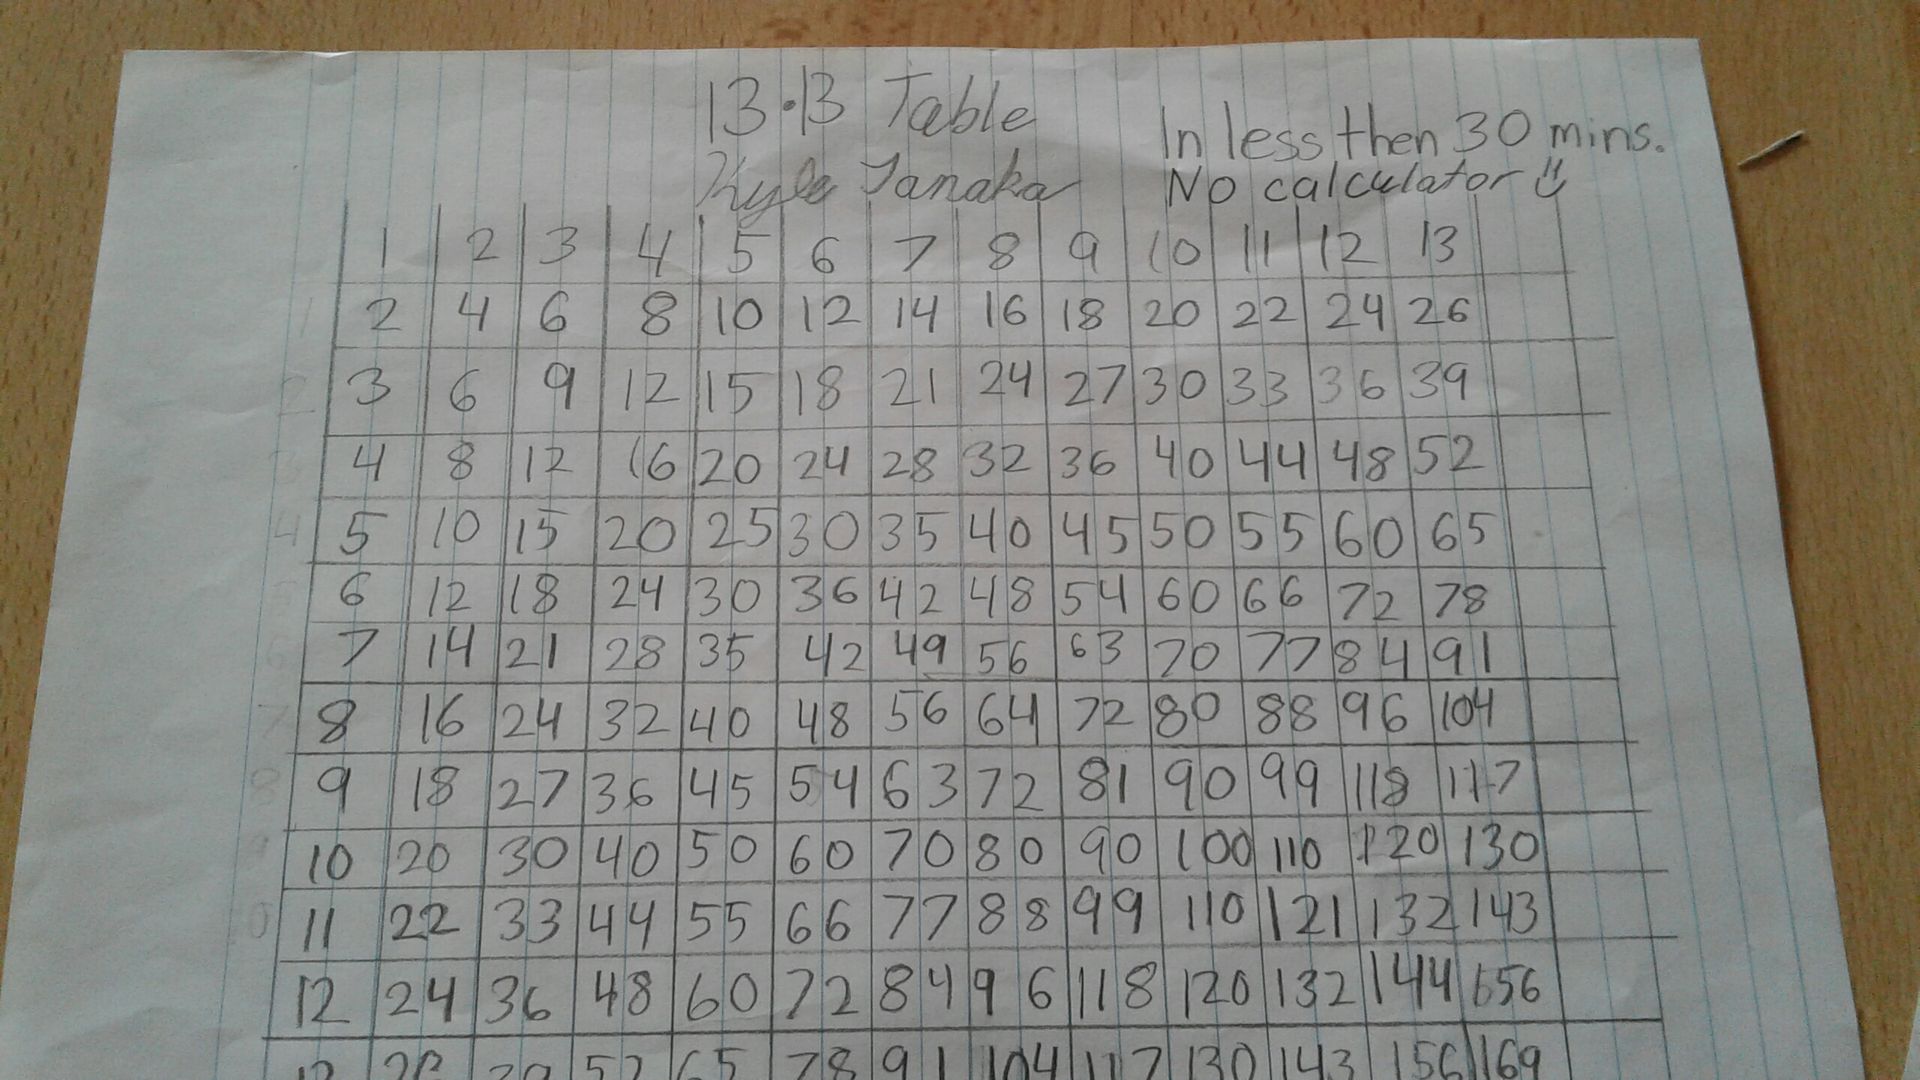 13·13 Table
In less then 30 mins.
Kyle Tanaka
No calculator
1 2 3 4 5 6 7 8 9 10 11 12 13
2 4 6 8 10 12 14 16 18 20 22 24 26
3 6 9 12 15 18 21 24 27 30 33 36 39
4 8 12 16 20 24 28 32 36 40 44 48 52
5 10 15 20 25 30 35 40 45 50 55 60 65
6 12 18 24 30 36 42 48 54 60 66 72 78
7 14 21 28 35 42 49 56 63 70 77 84 91
8 16 24 32 40 48 56 64 72 80 88 96 104
9 18 27 36 45 54 63 72 81 90 99 118 117
10 20 30 40 50 60 70 80 90 100 110 120 130
11 22 33 44 55 66 77 88 99 110 121 132 143
12 24 36 48 60 72 84 96 118 120 132 144 156
52 65 78 91 104 117 130 143 156 169